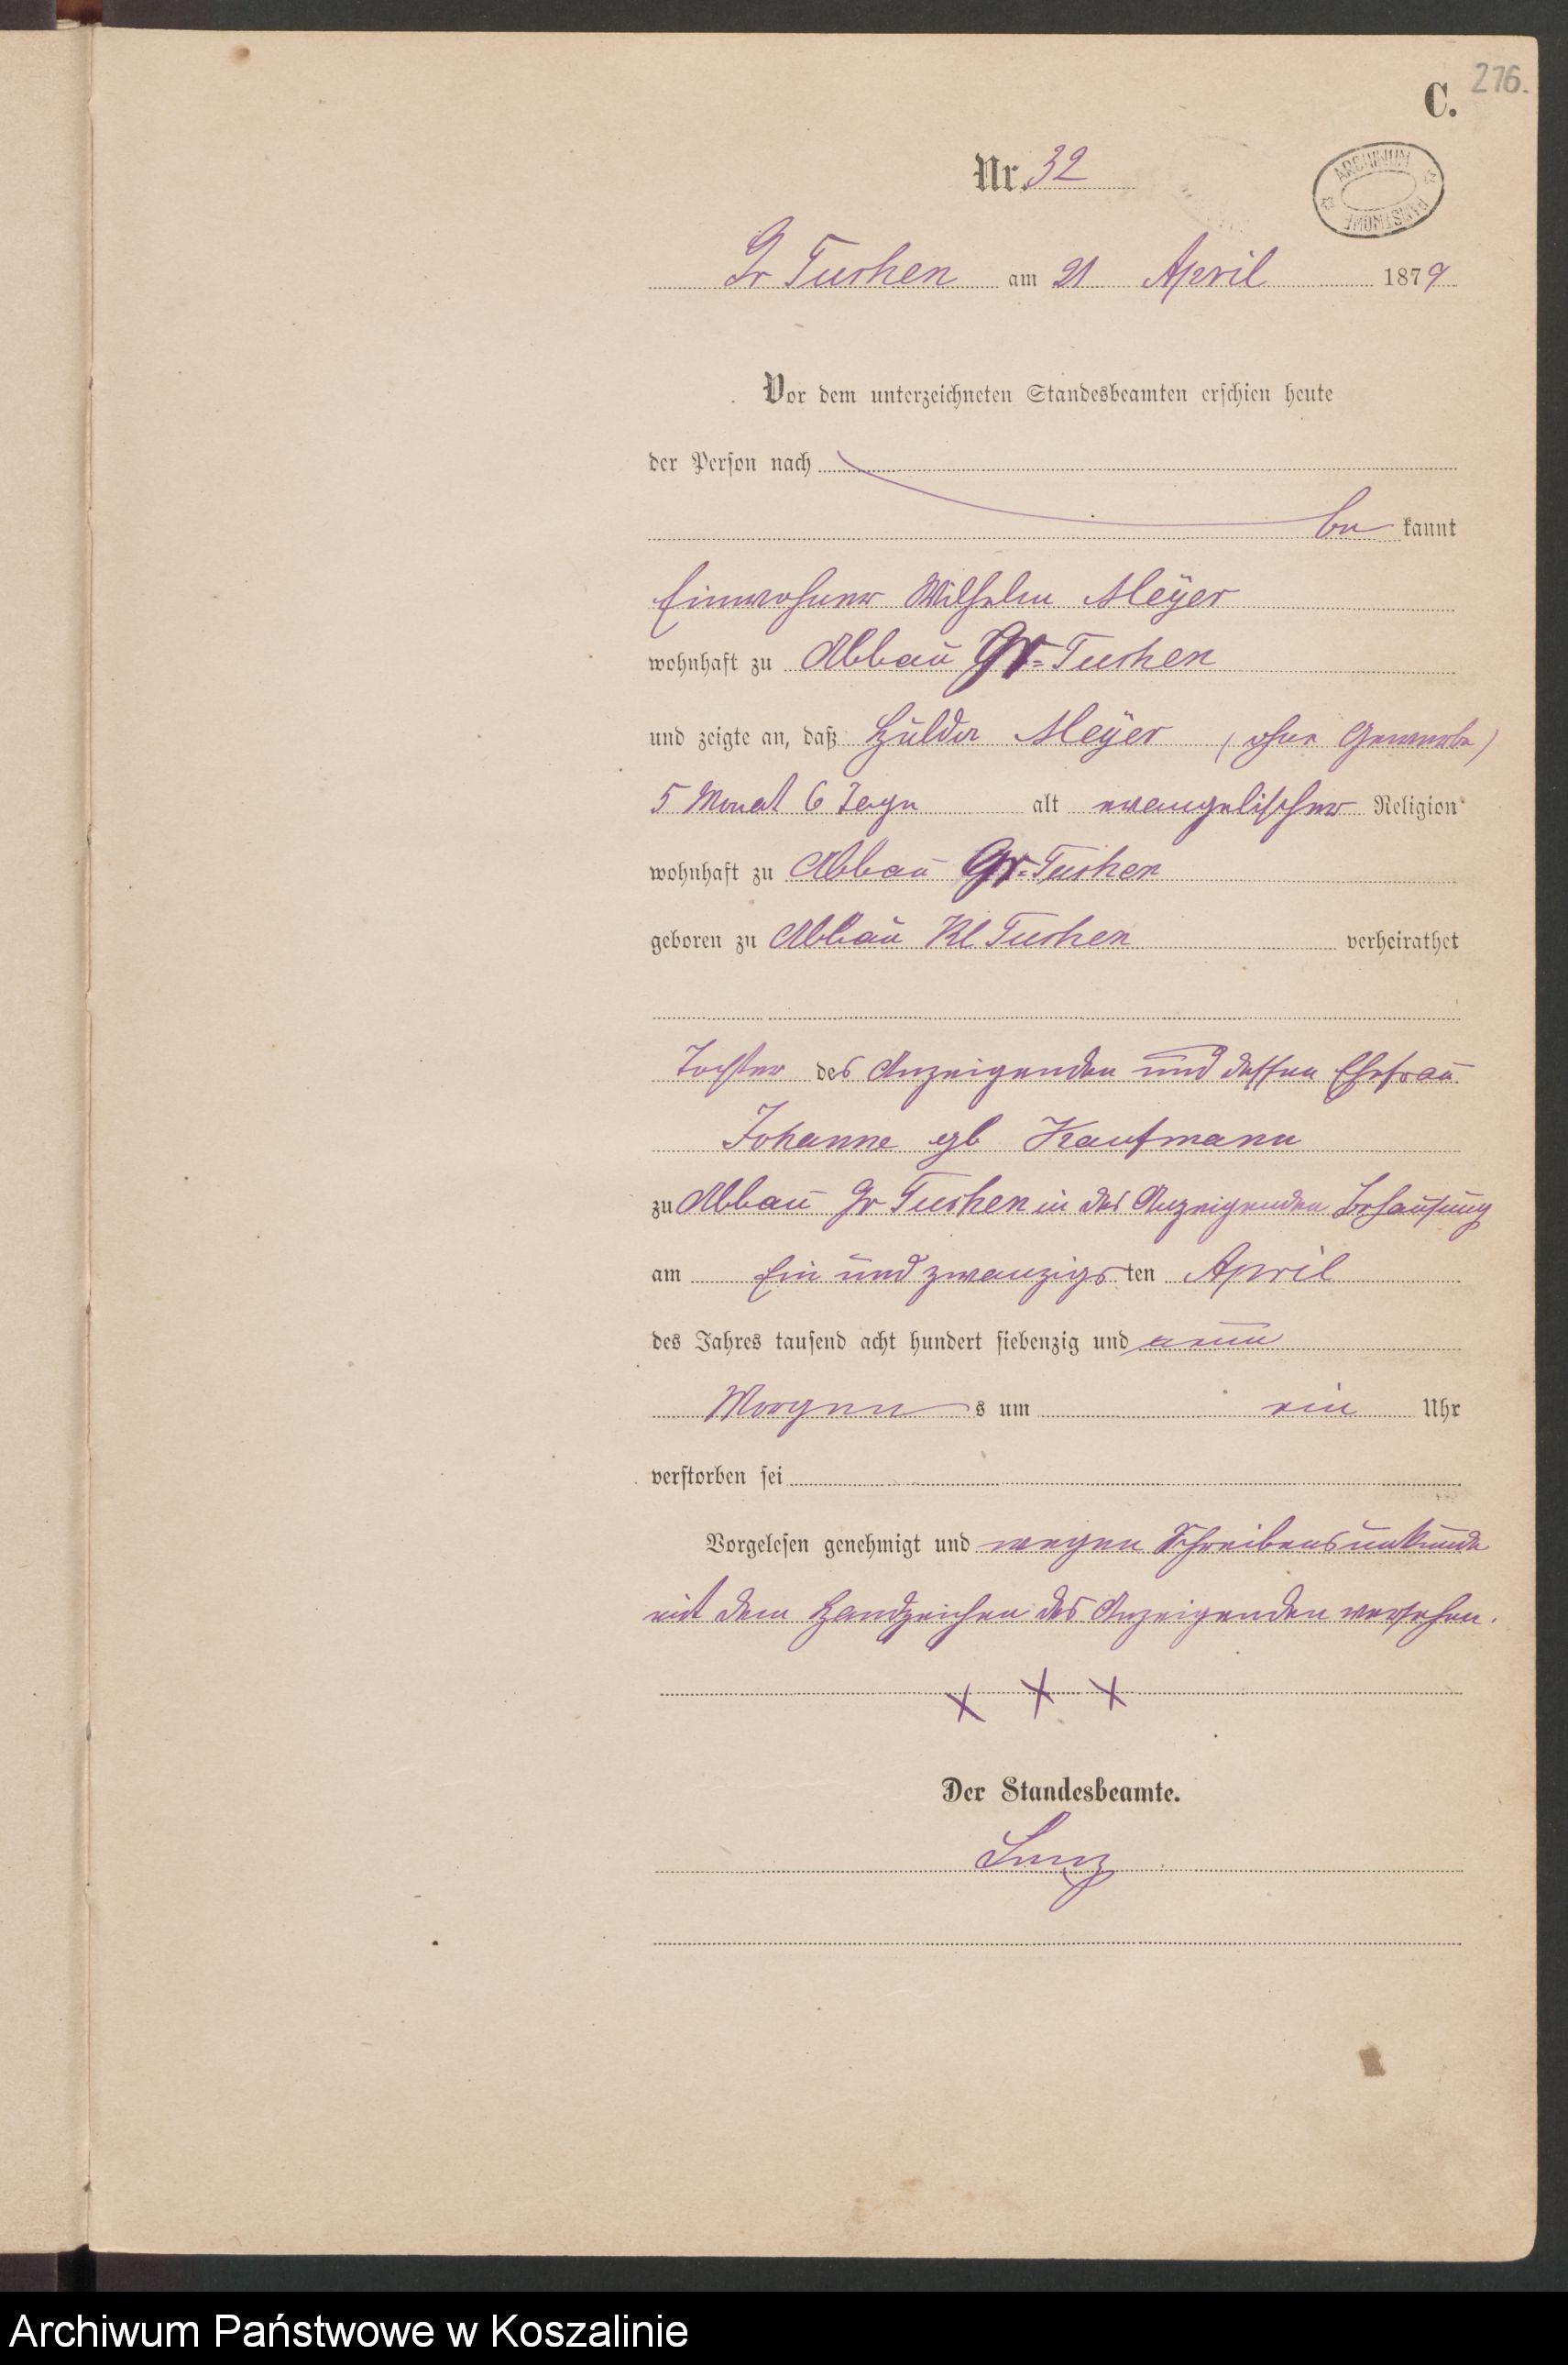 276.
C.
ARCHIWUM PAŃSTWOWE
Nr. 32
Gr Tuchen am 21 April 1879
Vor dem unterzeichneten Standesbeamten erschien heute
der Person nach
be kannt
Einwohner Wilhelm Meÿer
wohnhaft zu Abbau Gr=Tuchen
und zeigte an, daß Hulda Meÿer (ohne Gewerbe)
5 Monat 6 Tage alt evangelischer Religion
wohnhaft zu Abbau Gr=Tuchen
geboren zu Abbau Kl Tuchen verheirathet
Tochter des Anzeigenden und dessen Ehefrau
Johanne geb Kaufmann
zu Abbau Gr Tuchen in des Anzeigenden Behausung
am Ein und zwanzigsten April
des Jahres tausend acht hundert siebenzig und neun
Morgens um ein Uhr
verstorben sei
Vorgelesen genehmigt und wegen Schreibensunkunde
mit dem Handzeichen des Anzeigenden versehen.
X X X
Der Standesbeamte.
Archiwum Państwowe w Koszalinie